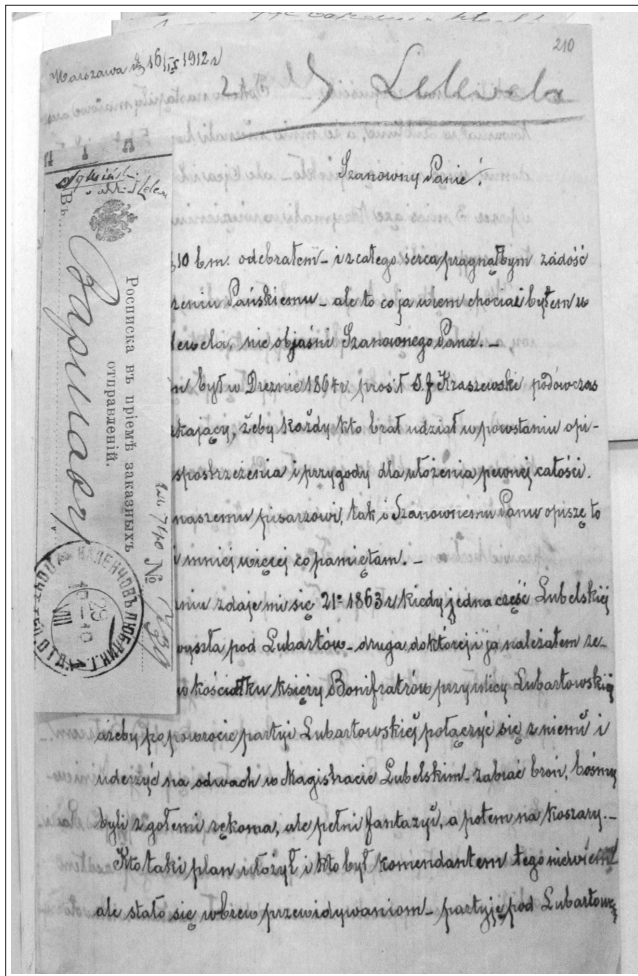 210
Warszawa d 16/IX 1912 r
2 Lelewela
Szanowny Panie!
10 b.m. odebrałem – i z całego serca pragnąłbym zadość
żeniu Pańskiemu – ale to co ja wiem chociaż byłem u
lewela, nie objaśni Szanownego Pana. –
był w Dreznie 1864 r. prosił S.p. J Kraszewski podówczas
szkający, żeby każdy kto brał udział w powstaniu opi-
spostrzeżenia i przygody dla ułożenia pewnej całości.
naszemu pisarzowi, tak i Szanownemu Panu opiszę to
mniej więcej co pamiętam. –
niu zdaje mi się 21º 1863 r kiedy jedna część Lubelskiej
wyszła pod Lubartów – druga do której i ja należałem ze-
w kościołku księży Bonifratrów przy ulicy Lubartowskiej
ażeby po powrocie partyi Lubartowskiej połączyć się z niemi i
uderzyć na odwach w Magistracie Lubelskim – zabrać broń, bośmy
byli z gołemi rękoma, ale pełni fantazyi, a potem na koszary. –
Kto taki plan ułożył i kto był komendantem tego nie wiem
ale stało się wbrew przewidywaniom – partyję pod Lubartów
Въ
Варшаву
Росписка въ пріемѣ заказныхъ
отправленій.
№
НАЛЕНЧОВЪ ЛЮБЛИН. Г.
VIII